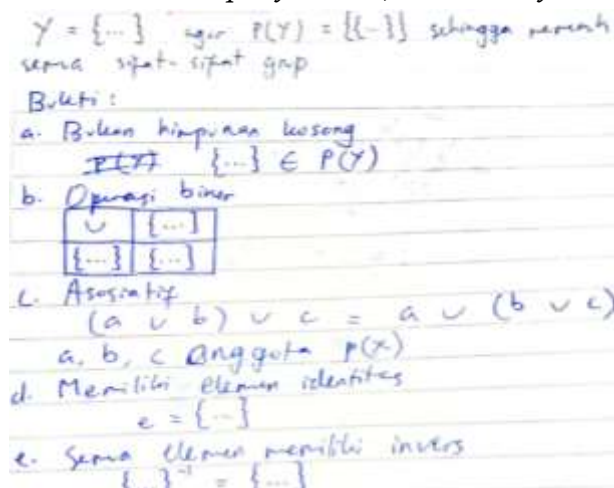 Y = {...} agar P(Y) = {{...}} sehingga memenuh
semua sifat-sifat grup
Bukti :
a. Bukan himpunan kosong
P(Y) {...} ∈ P(Y)
b. Operasi biner
∪ {...}
{...} {...}
c. Asosiatif
(a ∪ b) ∪ c = a ∪ (b ∪ c)
a, b, c anggota P(X)
d. Memiliki elemen identitas
e = {...}
e. Semua elemen memiliki invers
{...}⁻¹ = {...}